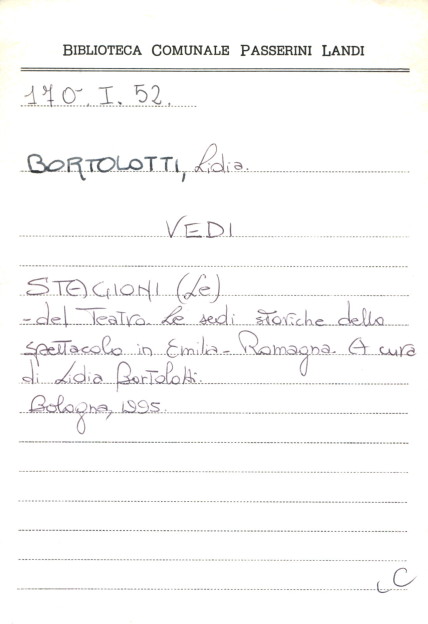 BIBLIOTECA COMUNALE PASSERINI LANDI
170. I. 52.
BORTOLOTTI, Lidia.
VEDI
STAGIONI (Le)
-del Teatro. Le sedi storiche dello
spettacolo in Emilia-Romagna. A cura
di Lidia Bortolotti.
Bologna, 1995.
LC